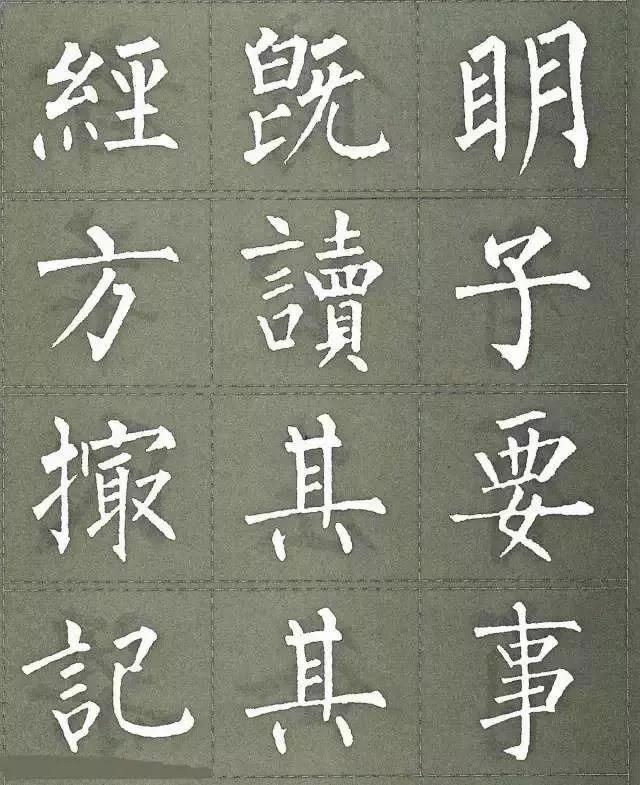 經既明
方讀子
撮其要
記其事